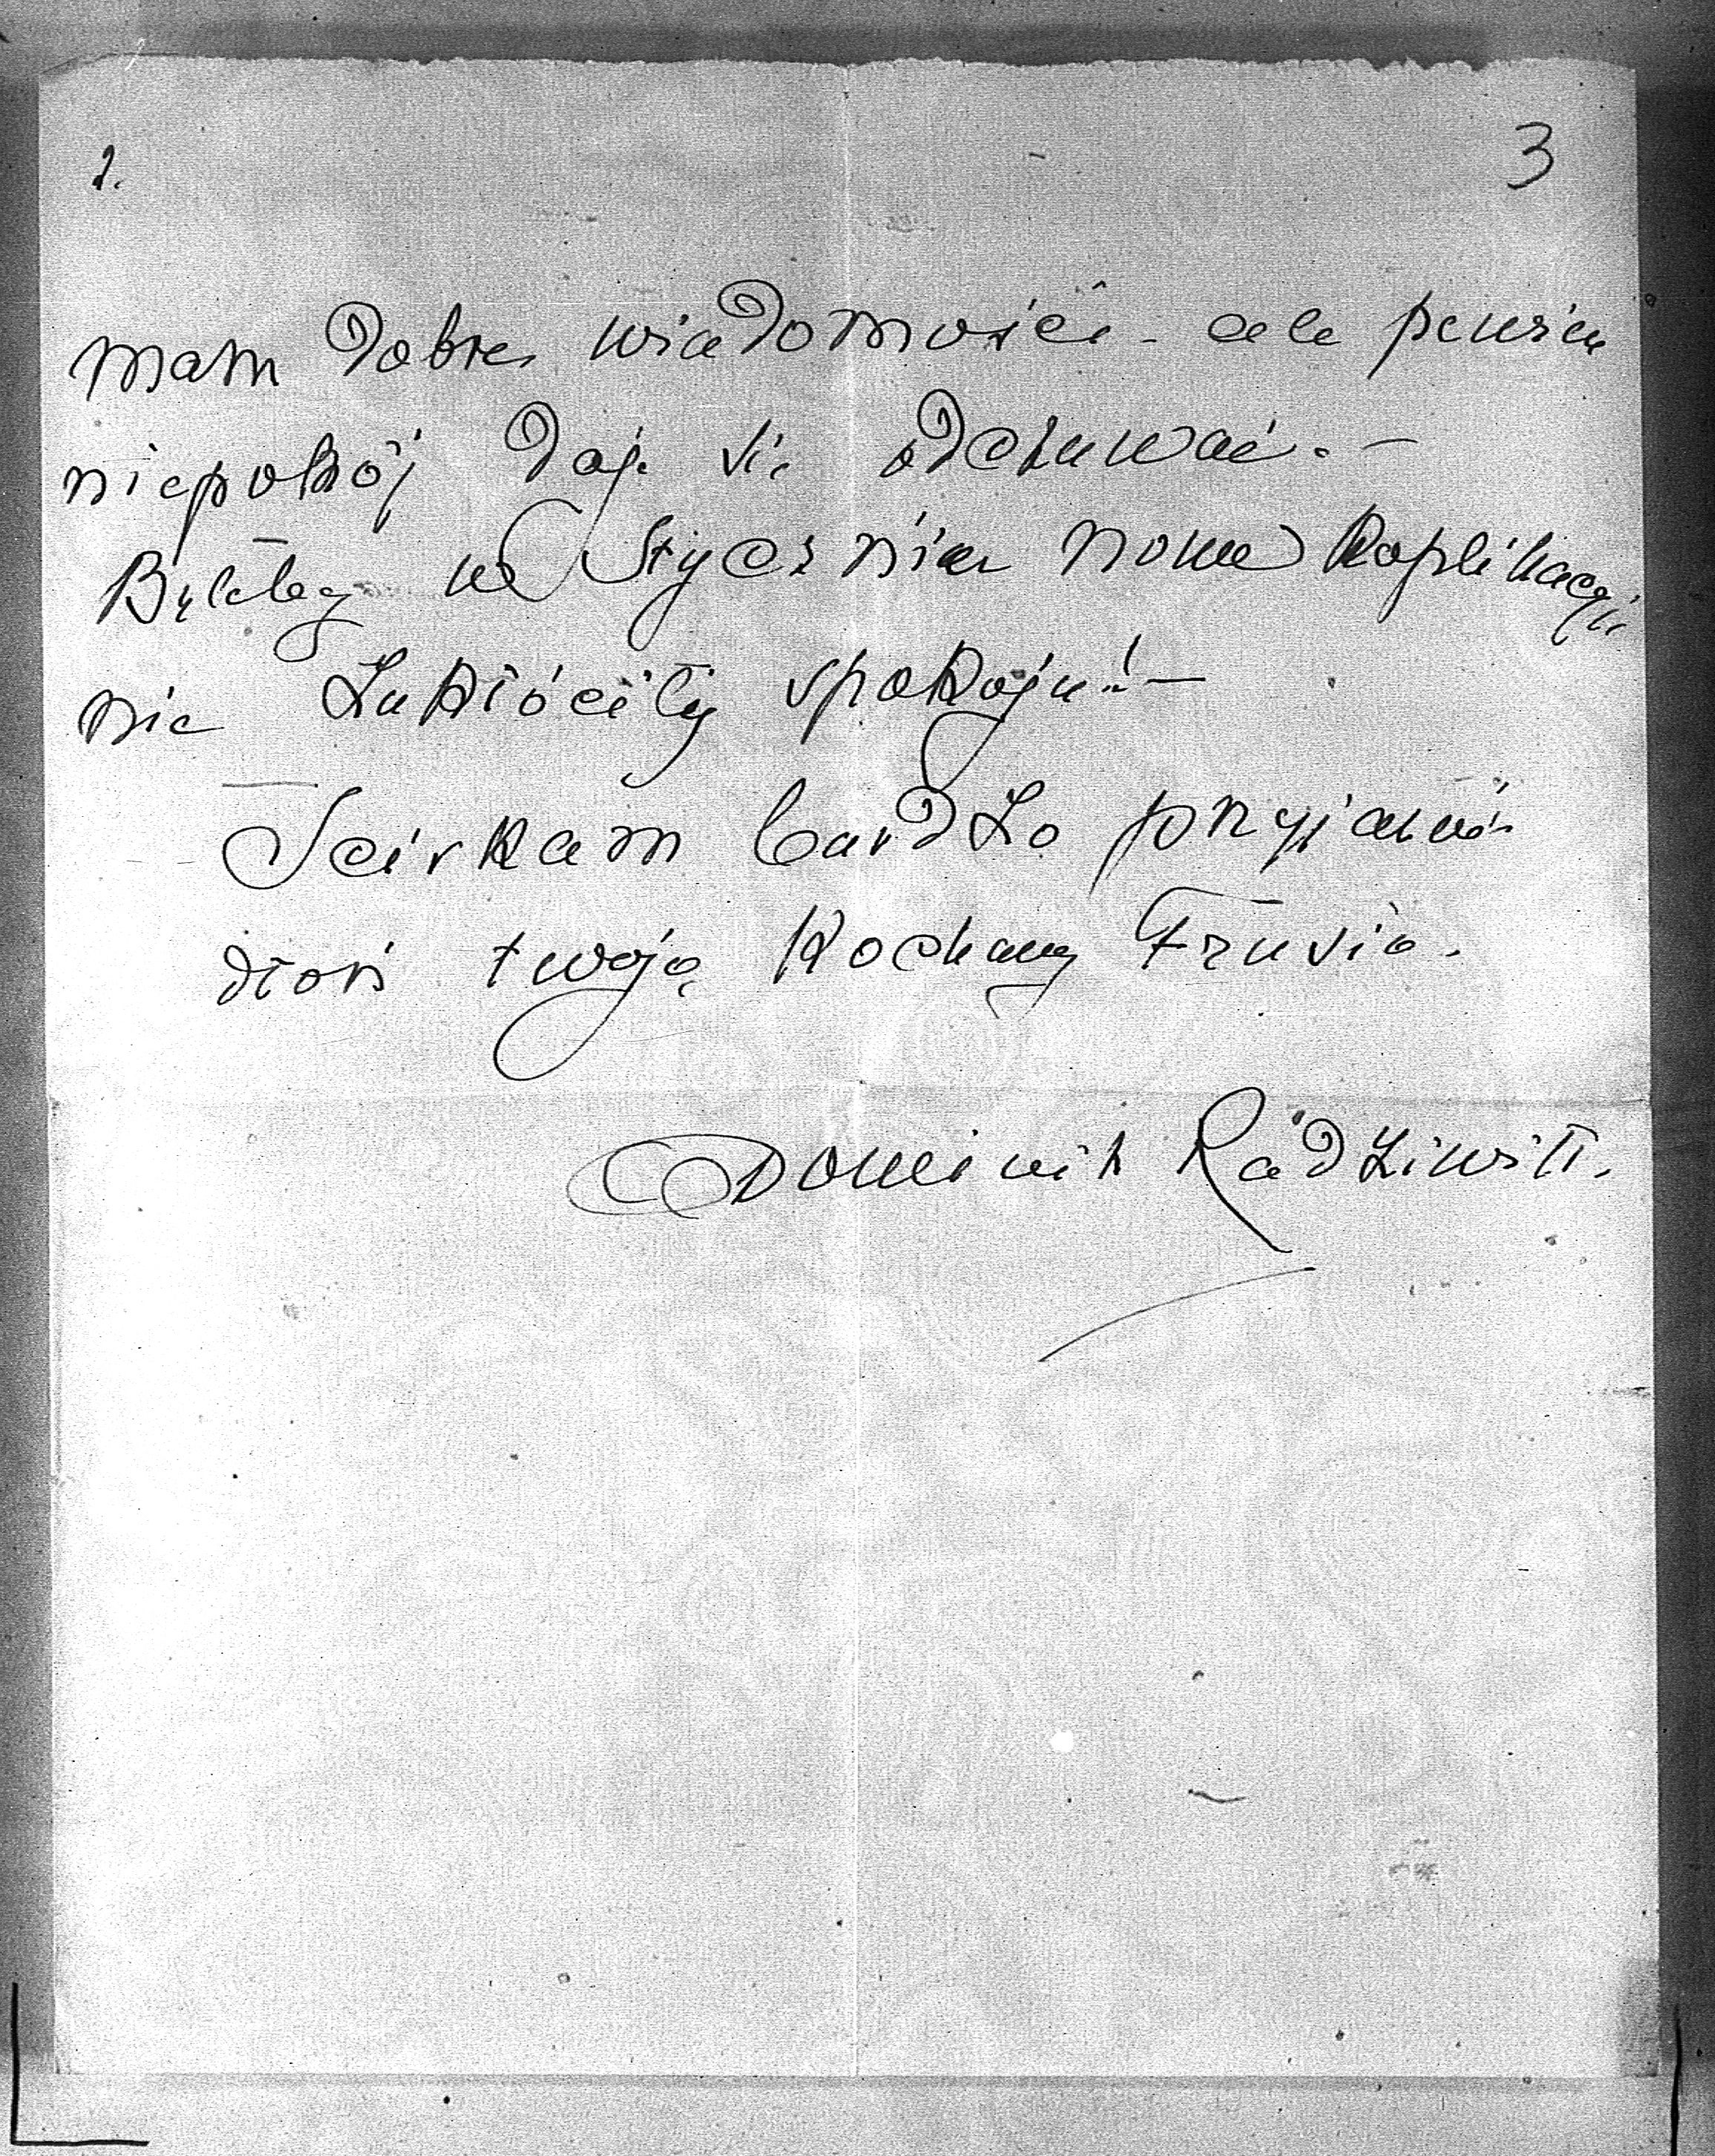 2.
3
mam dobre wiadomości - ale pewien
niepokój daje się odczuwać. -
Byleby w Styczniu nowe Komplikacyje
nie zakłóciły spokoju! -
Sciskam bardzo przyjaźnie
dłoń twoją Kochany
Dominik Radziwiłł.